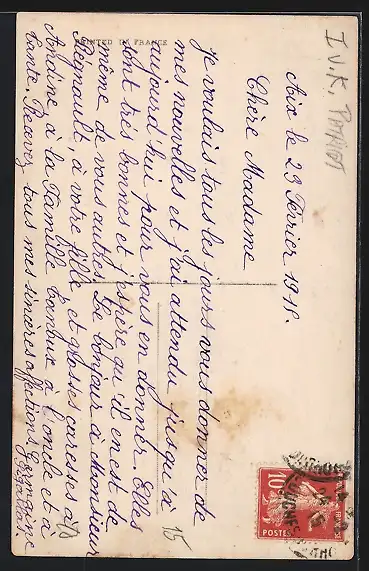 PRINTED IN FRANCE
I.V.K. PATRIOT
Aix le 23 Février 1918.
Chère Madame
Je voulais tous les jours vous donner de
mes nouvelles et j'ai attendu jusqu'à
aujourd'hui pour vous en donner. Elles
sont très bonnes et j'espère qu'il en est de
même de vous autres. Le bonjour à Monsieur
Régnault, à votre fille et grosses caresses à
Andine, à la Famille à l'oncle et à
tante. Recevez tous mes sincères affections
15
10
POSTES